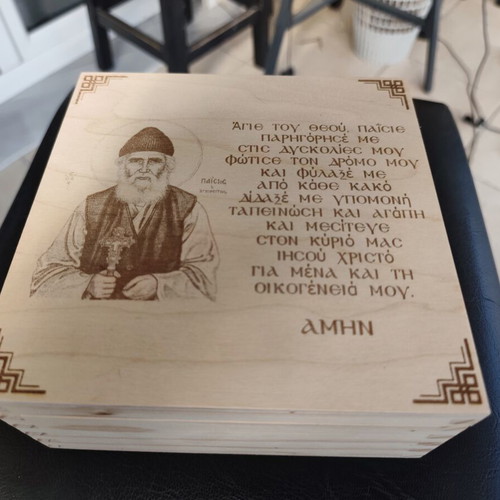 ΆΓΙΕ ΤΟΥ ΘΕΟΎ, ΠΑΪ́CΙΕ
ΠΑΡΗΓΌΡΗCΕ ΜΕ
CΤΙC ΔΥCΚΟΛΊΕC ΜΟΥ
ΦΏΤΙCΕ ΤΟΝ ΔΡΌΜΟ ΜΟΥ
ΚΑΙ ΦΎΛΑΞΈ ΜΕ
ΑΠΌ ΚΆΘΕ ΚΑΚΌ
ΔΊΔΑΞΈ ΜΕ ΥΠΟΜΟΝΉ
ΤΑΠΕΊΝΩCΗ ΚΑΙ ΑΓΆΠΗ
ΚΑΙ ΜΕCΊΤΕΥΕ
CΤΟΝ ΚΎΡΙΌ ΜΑC
ΙΗCΟΎ ΧΡΙCΤΌ
ΓΙΑ ΜΈΝΑ ΚΑΙ ΤΗ
ΟΙΚΟΓΈΝΕΙΆ ΜΟΥ.
ΑΜΗΝ
ΠΑΪ́CΙΟC